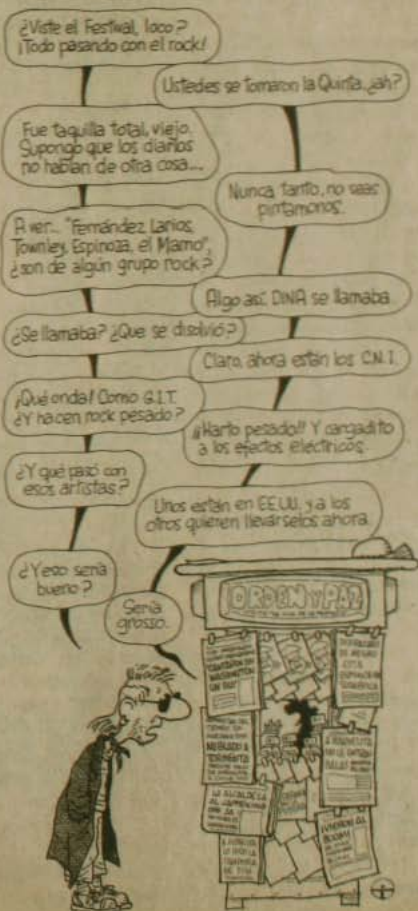 ¿Viste el Festival, loco?
¡Todo pasando con el rock!
Ustedes se tomaron la Quinta ¿ah?
Fue taquilla total, viejo.
Supongo que los diarios
no hablan de otra cosa...
Nunca tanto, no seas
pintamonos.
A ver... "Fernández Larios,
Townley, Espinoza, el Mamo",
¿son de algún grupo rock?
Algo así. DINA se llamaba.
¿Se llamaba? ¿Que se disolvió?
Claro, ahora están los C.N.I.
¡Qué onda! Como G.I.T.
¿Y hacen rock pesado?
¡¡Harto pesado!! Y cargadito
a los efectos eléctricos.
¿Y qué pasó con
esos artistas?
Unos están en EE.UU. y a los
otros quieren llevárselos ahora.
¿Y eso sería
bueno?
Sería
grosso.
ORDEN Y PAZ
WASHINGTON
LA ALCALDESA